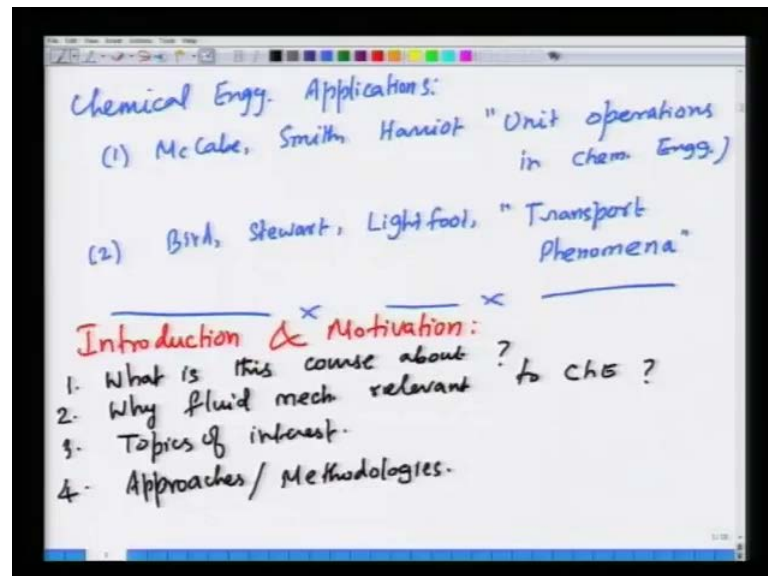 Chemical Engg. Applications:
(1) McCabe, Smith Harriot "Unit operations
in Chem. Engg.)
(2) Bird, Stewart, Lightfoot, "Transport
Phenomena"
Introduction & Motivation:
1. What is this course about ?
2. Why fluid mech relevant to ChE ?
3. Topics of interest.
4. Approaches / Methodologies.